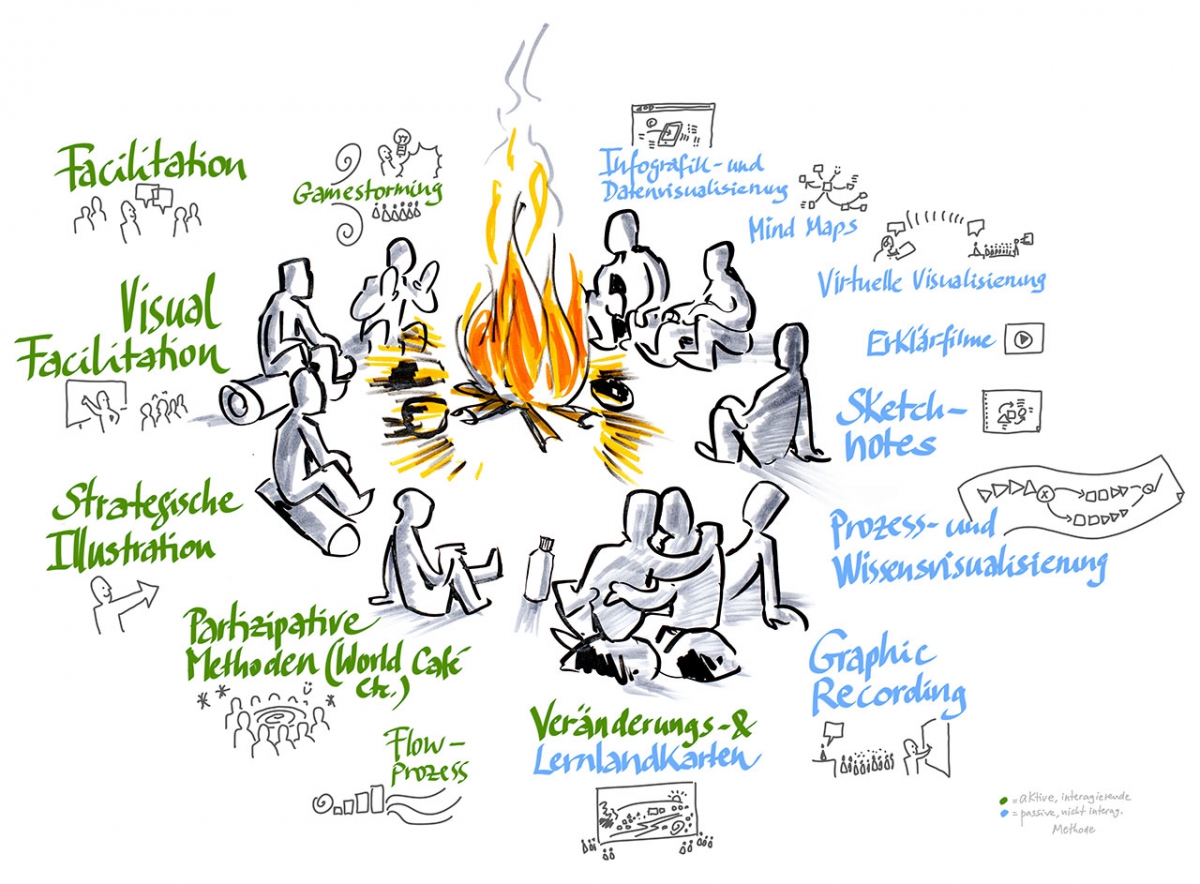 Facilitation
Gamestorming
Infografik- und
Datenvisualisierung
Mind Maps
Virtuelle Visualisierung
Visual
Facilitation
Erklärfilme
Sketch-
notes
Strategische
Illustration
Prozess- und
Wissensvisualisierung
Partizipative
Methoden (World Café
etc.)
Graphic
Recording
Flow-
Prozess
Veränderungs-&
Lernlandkarten
= aktive, interagierende
= passive, nicht interag.
Methode